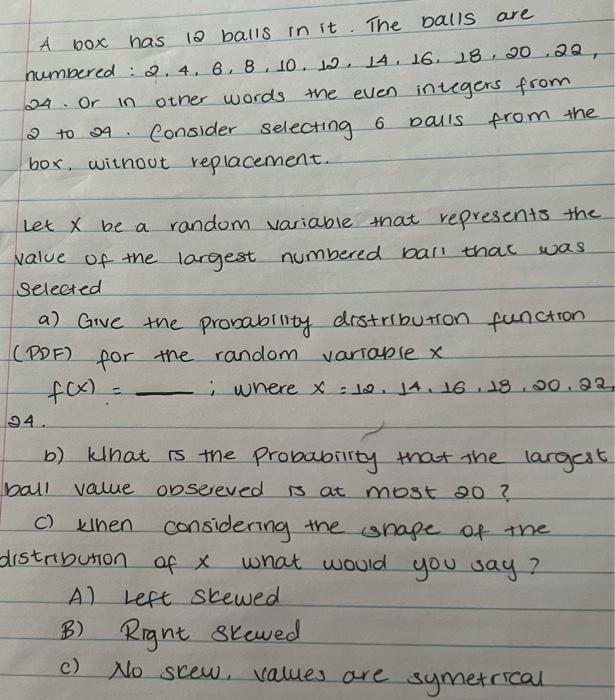 A box has 12 balls in it. The balls are
numbered : 2, 4, 6, 8, 10, 12, 14, 16, 18, 20, 22,
24. Or in other words the even integers from
2 to 24. Consider selecting 6 balls from the
box, without replacement.
Let X be a random variable that represents the
value of the largest numbered ball that was
selected
a) Give the probability distribution function
(PDF) for the random variable x
f(x) = ____ ; where x = 12, 14, 16, 18, 20, 22,
24.
b) What is the Probability that the largest
ball value obsereved is at most 20 ?
c) When considering the shape of the
distribution of x what would you say ?
A) Left skewed
B) Right skewed
C) No skew, values are symetrical